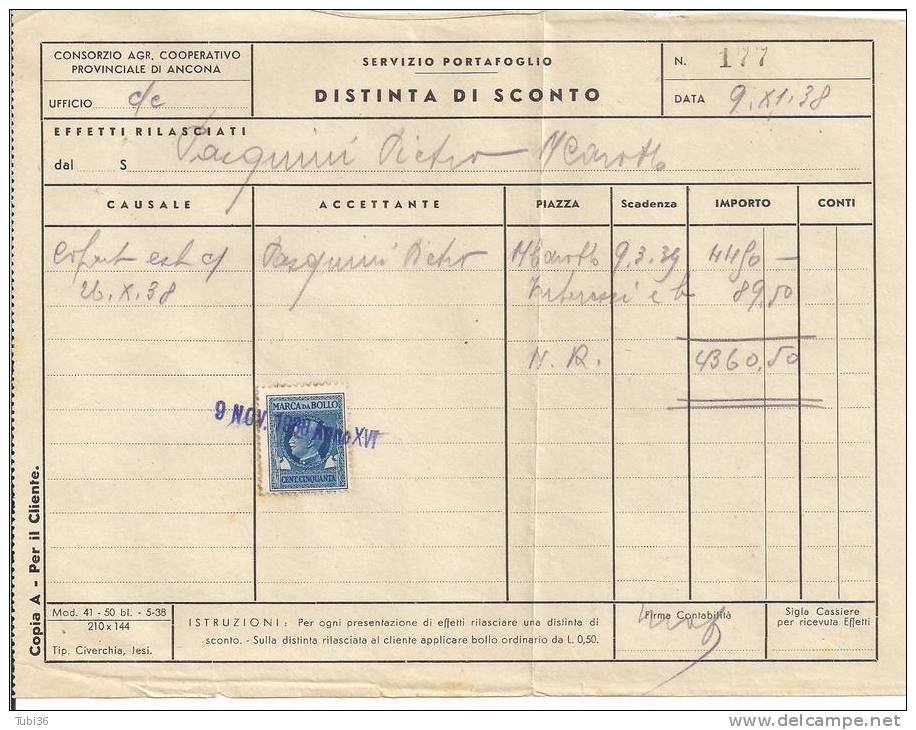 CONSORZIO AGR. COOPERATIVO
PROVINCIALE DI ANCONA
UFFICIO c/c
SERVIZIO PORTAFOGLIO
DISTINTA DI SCONTO
N. 177
DATA 9.XI.38
EFFETTI RILASCIATI
dal S Pasquini Pietro
CAUSALE ACCETTANTE PIAZZA Scadenza IMPORTO CONTI
Pasquini Pietro 9.3.39 4450 —
26.X.38 89,50
N. R. 4360,50
MARCA DA BOLLO
9 NOV. 1938 Anno XVI
CENT. CINQUANTA
Copia A - Per il Cliente.
Mod. 41 - 50 bl. - 5-38
210 x 144
Tip. Civerchia, Iesi.
ISTRUZIONI: Per ogni presentazione di effetti rilasciare una distinta di
sconto. - Sulla distinta rilasciata al cliente applicare bollo ordinario da L. 0,50.
Firma Contabilità
Sigla Cassiere
per ricevuta Effetti
Tubi36
delcampe.net